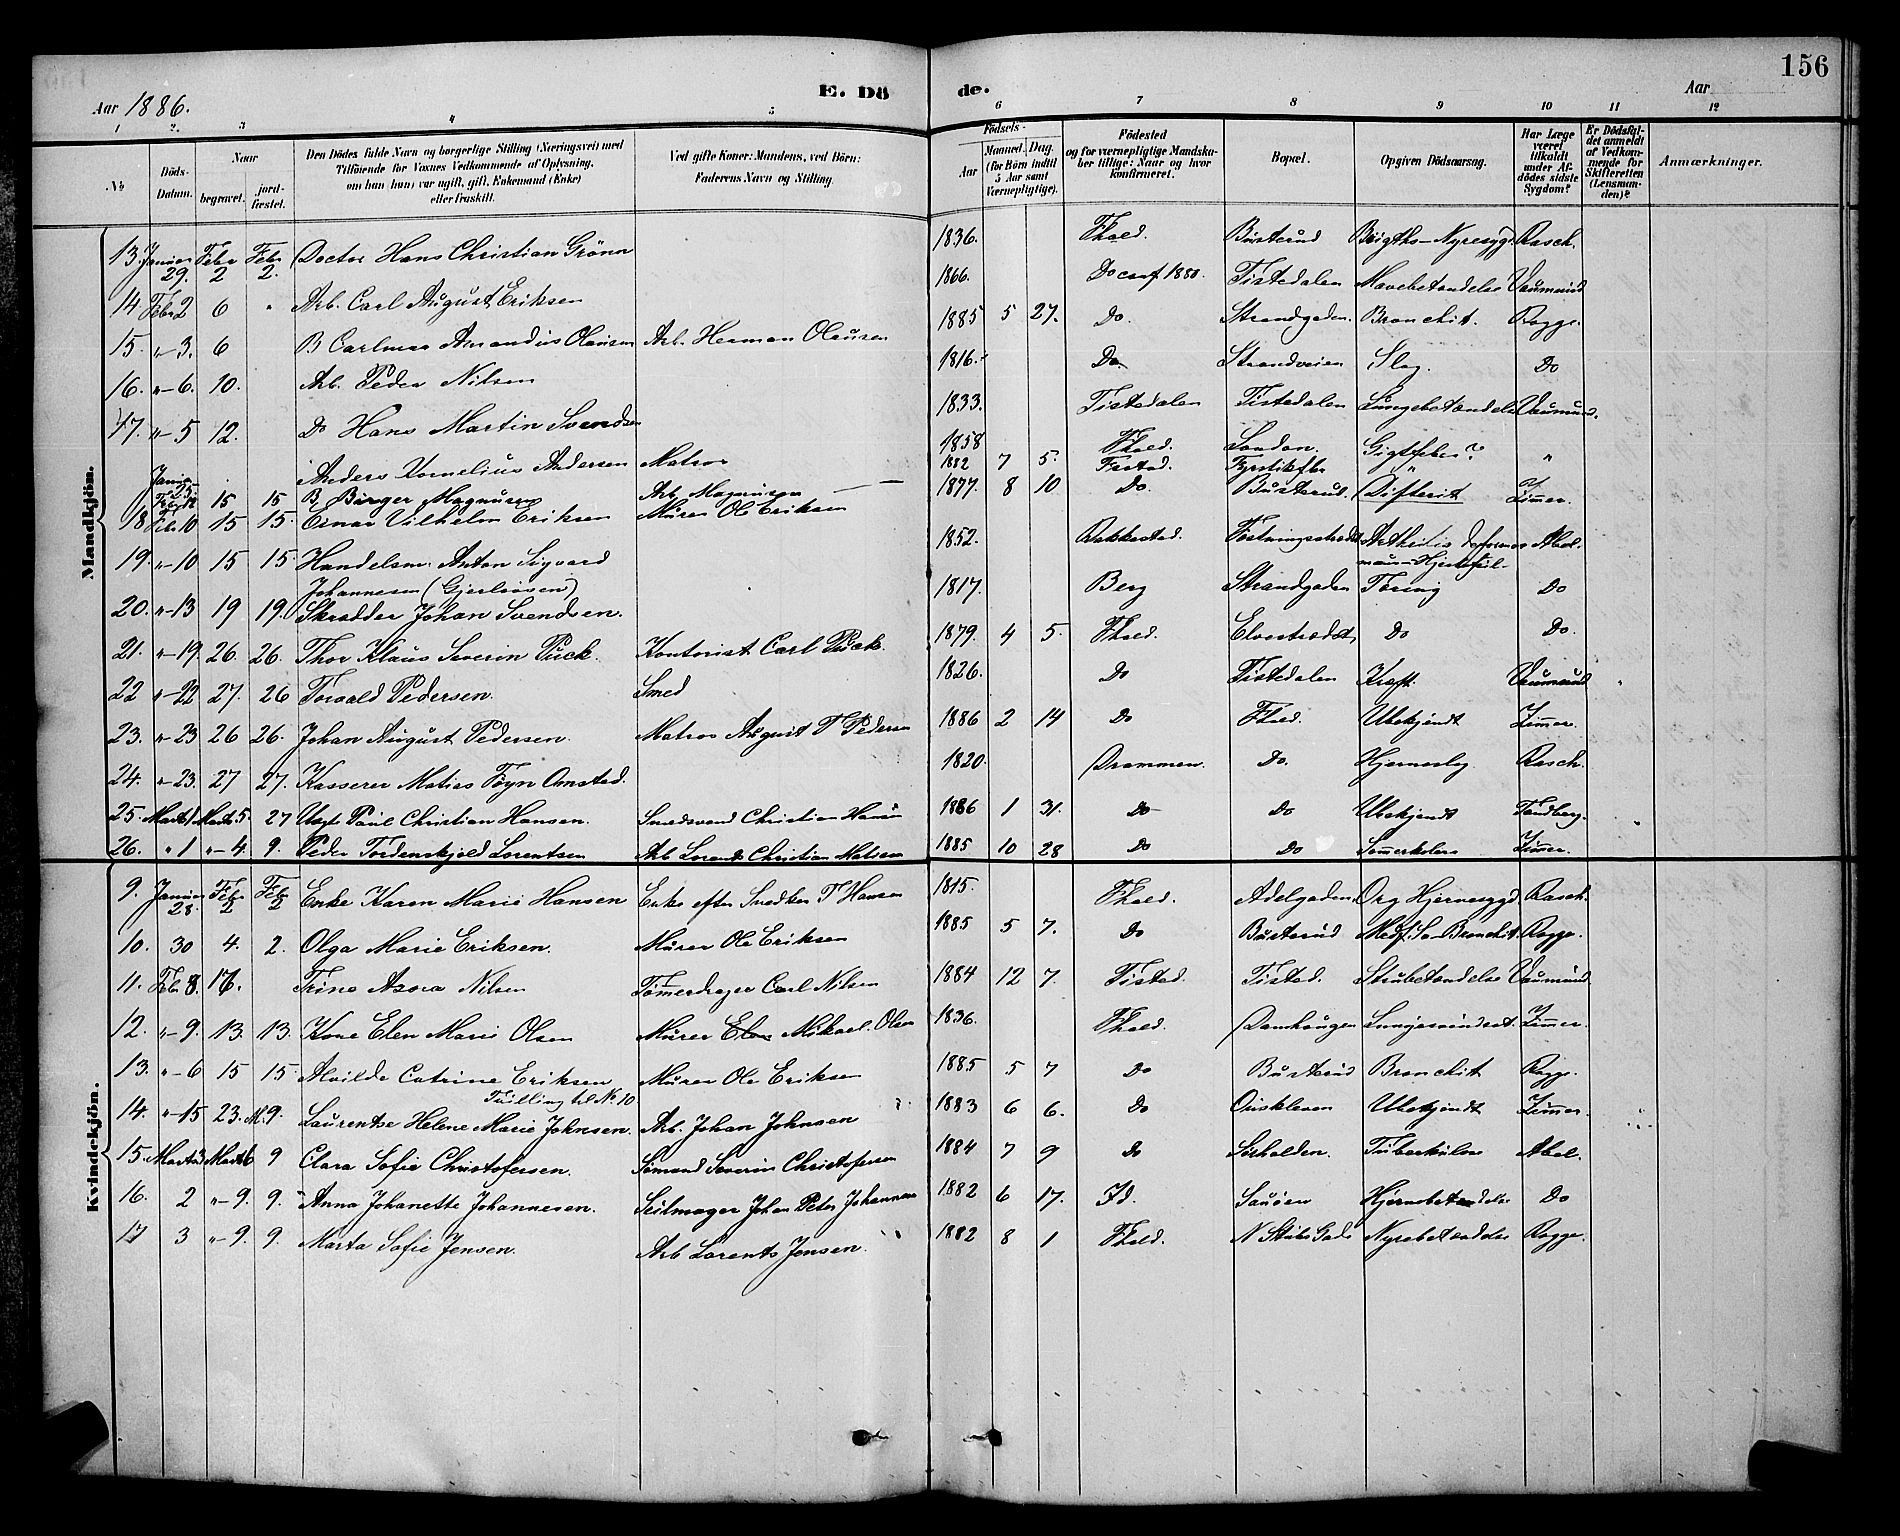 156
Aar 1886.
E. Dö
de.
Aar
1 2. 3 4 5
6 7 8 9 10 11 12
№
Döds-Datum.
Naar
begravet.
jordfæstet.
Den Dödes fulde Navn og borgerlige Stilling (Næringsvei) med
Tilföiende for Voxnes Vedkommende af Oplysning,
om han (hun) var ugift, gift, Enkemand (Enke)
eller fraskilt.
Ved gifte Koner: Mandens, ved Börn:
Faderens Navn og Stilling.
Födsels-
Aar
Maaned. Dag.
(for Börn indtil
5 Aar samt
Værnepligtige).
Födested
og for værnepligtige Mandskaber tillige: Naar og hvor
konfirmeret.
Bopæl.
Opgiven Dödsaarsag.
Har Læge
været
tilkaldt
under Afdödes sidste
Sygdom?
Er Dödsfaldet anmeldt
af Vedkommende for
Skifteretten
(Lensmanden)?
Anmærkninger.
Mandkjön.
13. Januar 29. Febr 2 Febr 2. Doctor Hans Christian Grönn 1836. Fhald. Busterud Brigths-Nyresyg. Rasch.
14 Febr 2 6 " Arb. Carl August Eriksen 1866. Do conf 1880. Tistedalen Mavebetændelse Vaumund
15. "-3. 6 B Carlmar Amandus Olausen Arb. Herman Olausen 1885 5 27. Do. Strandgaden. Bronchit. Rogge.
16. "-6. 10. Arb. Peder Nilsen 1816. Do. Strandveien Slag. Do
17. "-5 12. Do Hans Martin Svendsen 1833. Tistedalen Tistedalen Lungebetændelse Vaumund.
Januar 25 Anders Kornelius Andersen Matros 1858 Fhald. London. Gigtfeber? "
15 15 B. Birger Magnusen Arb. Magnusen 1882 7 5. Difterit
18 Febr 10 15 15. Einar Vilhelm Eriksen Murer Ole Eriksen 1877. 8 10 Do. Busterud. Zimmer.
19. "-10 15 15 Handelsm. Anton Sigvard
Johannesen (Gjerlösen) 1852. Rakkestad. Abel.
20. "-13 19 19. Skrædder Johan Svendsen. 1817. Berg Strandgaden Tæring Do
21. "-19. 26. 26. Thor Klaus Severin Puck. Kontorist Carl Puck. 1879. 4 5. Fhald. Elvestrædet Do Do.
22 "-22 27. 26 Torvald Pedersen. Smed 1826. Do Tistedalen Kræft. Vaumund
23. "-23 26 26. Johan August Pedersen. Matros August T Pedersen 1886 2 14 Do Fhald. Ubekjendt Zimmer.
24. "-23. 27 27. Kasserer Matias Föyn Omsted. 1820. Drammen. Do. Hjerneslag. Rasch.
25. Marts 1 Marts 5. 27 Paul Christian Hansen. Smedsvend Christian Hansen 1886 1 31. Do Do Ubekjendt Tandberg.
26. " 1 "-4. 9. Peder Tordenskjold Lorentsen Arb Christian Matsen 1885 10 28 Do Do Zimmer.
Kvindekjön.
9. Januar 28. Febr 2 Febr 2 Enke Karen Marie Hansen Enke efter Snedker T Hansen 1815. Fhald. Adelgaden. Org Hjernesygd. Rasch.
10. 30 4. 2. Olga Marie Eriksen. Murer Ole Eriksen 1885 5 7. Do Busterud Bronchit Rogge.
11. Febr 8. 17 Trine Asora Nilsen Tömerdrager Carl Nilsen 1884 12 7. Tistad. Tistad. Strubetændelse Vaumund
12. "-9. 13. 13. Kone Elen Marie Olsen Murer Mikael. Olsen 1836. Fhald. Damhaugen Zimmer.
13. "-6 15 15. Alvilde Catrine Eriksen Murer Ole Eriksen 1885 5 7 Do Busterud Bronchit Rogge.
Tvilling til No. 10
14. "-15 23. M. 9. Laurentse Helene Marie Johnsen. Arb. Johan Johnsen 1883 6 6. Do Ubekjendt Zimmer.
15. Marts Marts 6 9 Clara Sofie Christofersen. Sömand Severin Christofersen 1884 7 9 Do Sörhalden. Tuberkulose Abel.
16. 2 "-9. 9. Anna Johanette Johannesen. Seilmager Johan Peter Johannesen 1882 6 17. Id. Sauöen Hjernebetændelse Do
17 3 "-9. 9. Marta Sofie Jensen. Arb Lorents Jensen. 1882 8 1 Fhald. Nyrebetændelse Rogge.